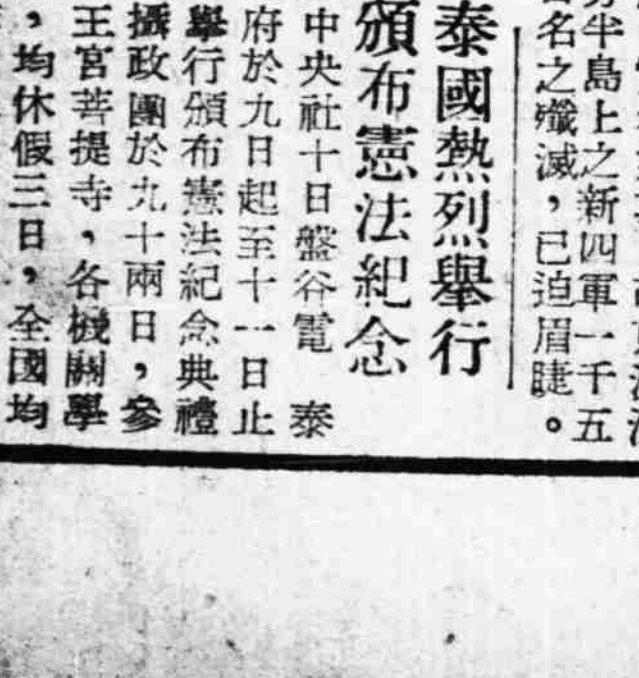 半島上之新四軍一千五
名之殲滅，已迫眉睫。
泰國熱烈舉行
頒布憲法紀念
中央社十日盤谷電　泰
府於九日起至十一日止
舉行頒布憲法紀念典禮
攝政團於九十兩日，參
王宮菩提寺，各機關學
，均休假三日，全國均